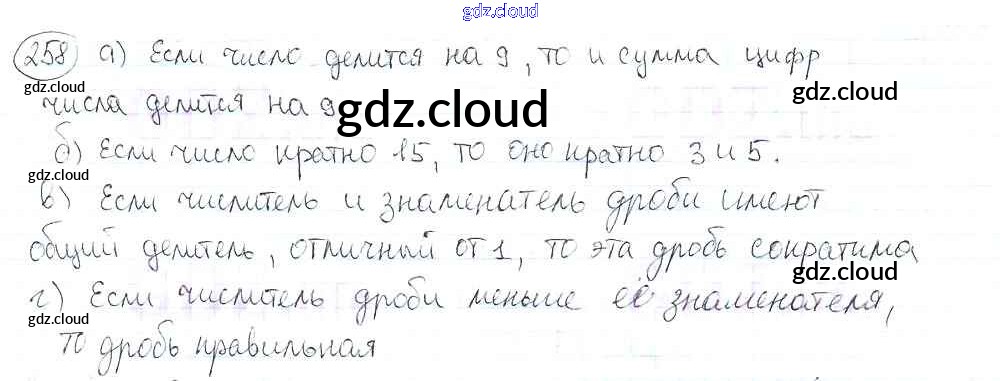 gdz.cloud
258 а) Если число делится на 9, то и сумма цифр
gdz.cloud
gdz.cloud
числа делится на 9
gdz.cloud
б) Если число кратно 15, то оно кратно 3 и 5.
gdz.cloud
в) Если числитель и знаменатель дроби имеют
общий делитель, отличный от 1, то эта дробь сократима
gdz.cloud
г) Если числитель дроби меньше её знаменателя,
gdz.cloud
то дробь правильная